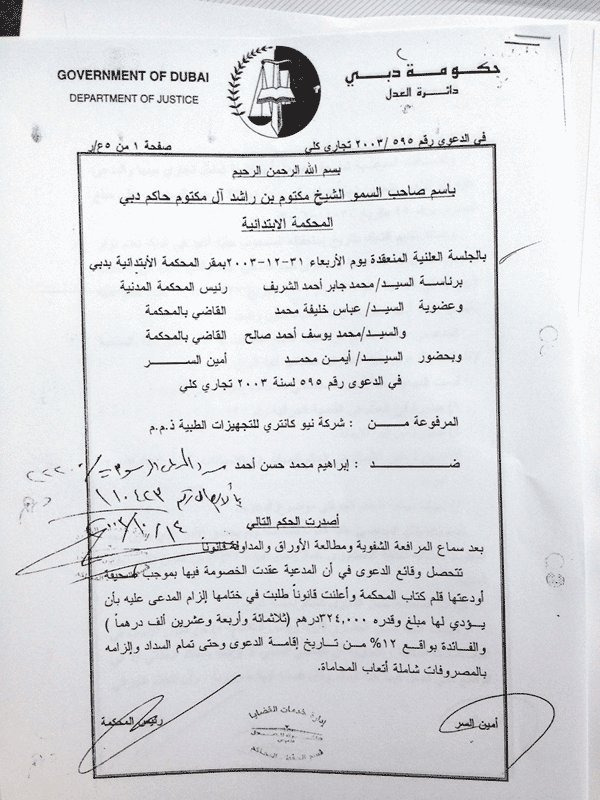 حكومة دبي
دائرة العدل
GOVERNMENT OF DUBAI
DEPARTMENT OF JUSTICE
في الدعوى رقم ٥٩٥/ ٢٠٠٣ تجاري كلي
صفحة ١ من ٥
بسم الله الرحمن الرحيم
باسم صاحب السمو الشيخ مكتوم بن راشد آل مكتوم حاكم دبي
المحكمة الابتدائية
بالجلسة العلنية المنعقدة يوم الأربعاء ٣١-١٢-٢٠٠٣ بمقر المحكمة الأبتدائية بدبي
برئاسة السيد/ محمد جابر أحمد الشريف رئيس المحكمة المدنية
وعضوية السيد/ عباس خليفة محمد القاضي بالمحكمة
والسيد/ محمد يوسف أحمد صالح القاضي بالمحكمة
وبحضور السيد/ أيمن محمد أمين السر
في الدعوى رقم ٥٩٥ لسنة ٢٠٠٣ تجاري كلي
المرفوعة من : شركة نيو كانتري للتجهيزات الطبية ذ.م.م
ضد : إبراهيم محمد حسن أحمد
بالايصال رقم ١١٠٤٢٣
أصدرت الحكم التالي
بعد سماع المرافعة الشفوية ومطالعة الأوراق والمداولة قانوناً
تتحصل وقائع الدعوى في أن المدعية عقدت الخصومة فيها بموجب صحيفة
أودعتها قلم كتاب المحكمة وأعلنت قانوناً طلبت في ختامها إلزام المدعى عليه بأن
يؤدي لها مبلغ وقدره ٣٢٤,٠٠٠درهم (ثلاثمائة وأربعة وعشرين ألف درهماً )
والفائدة بواقع ١٢% من تاريخ إقامة الدعوى وحتى تمام السداد وإلزامه
بالمصروفات شاملة أتعاب المحاماة.
أمين السر
إدارة خدمات القضايا
رئيس المحكمة